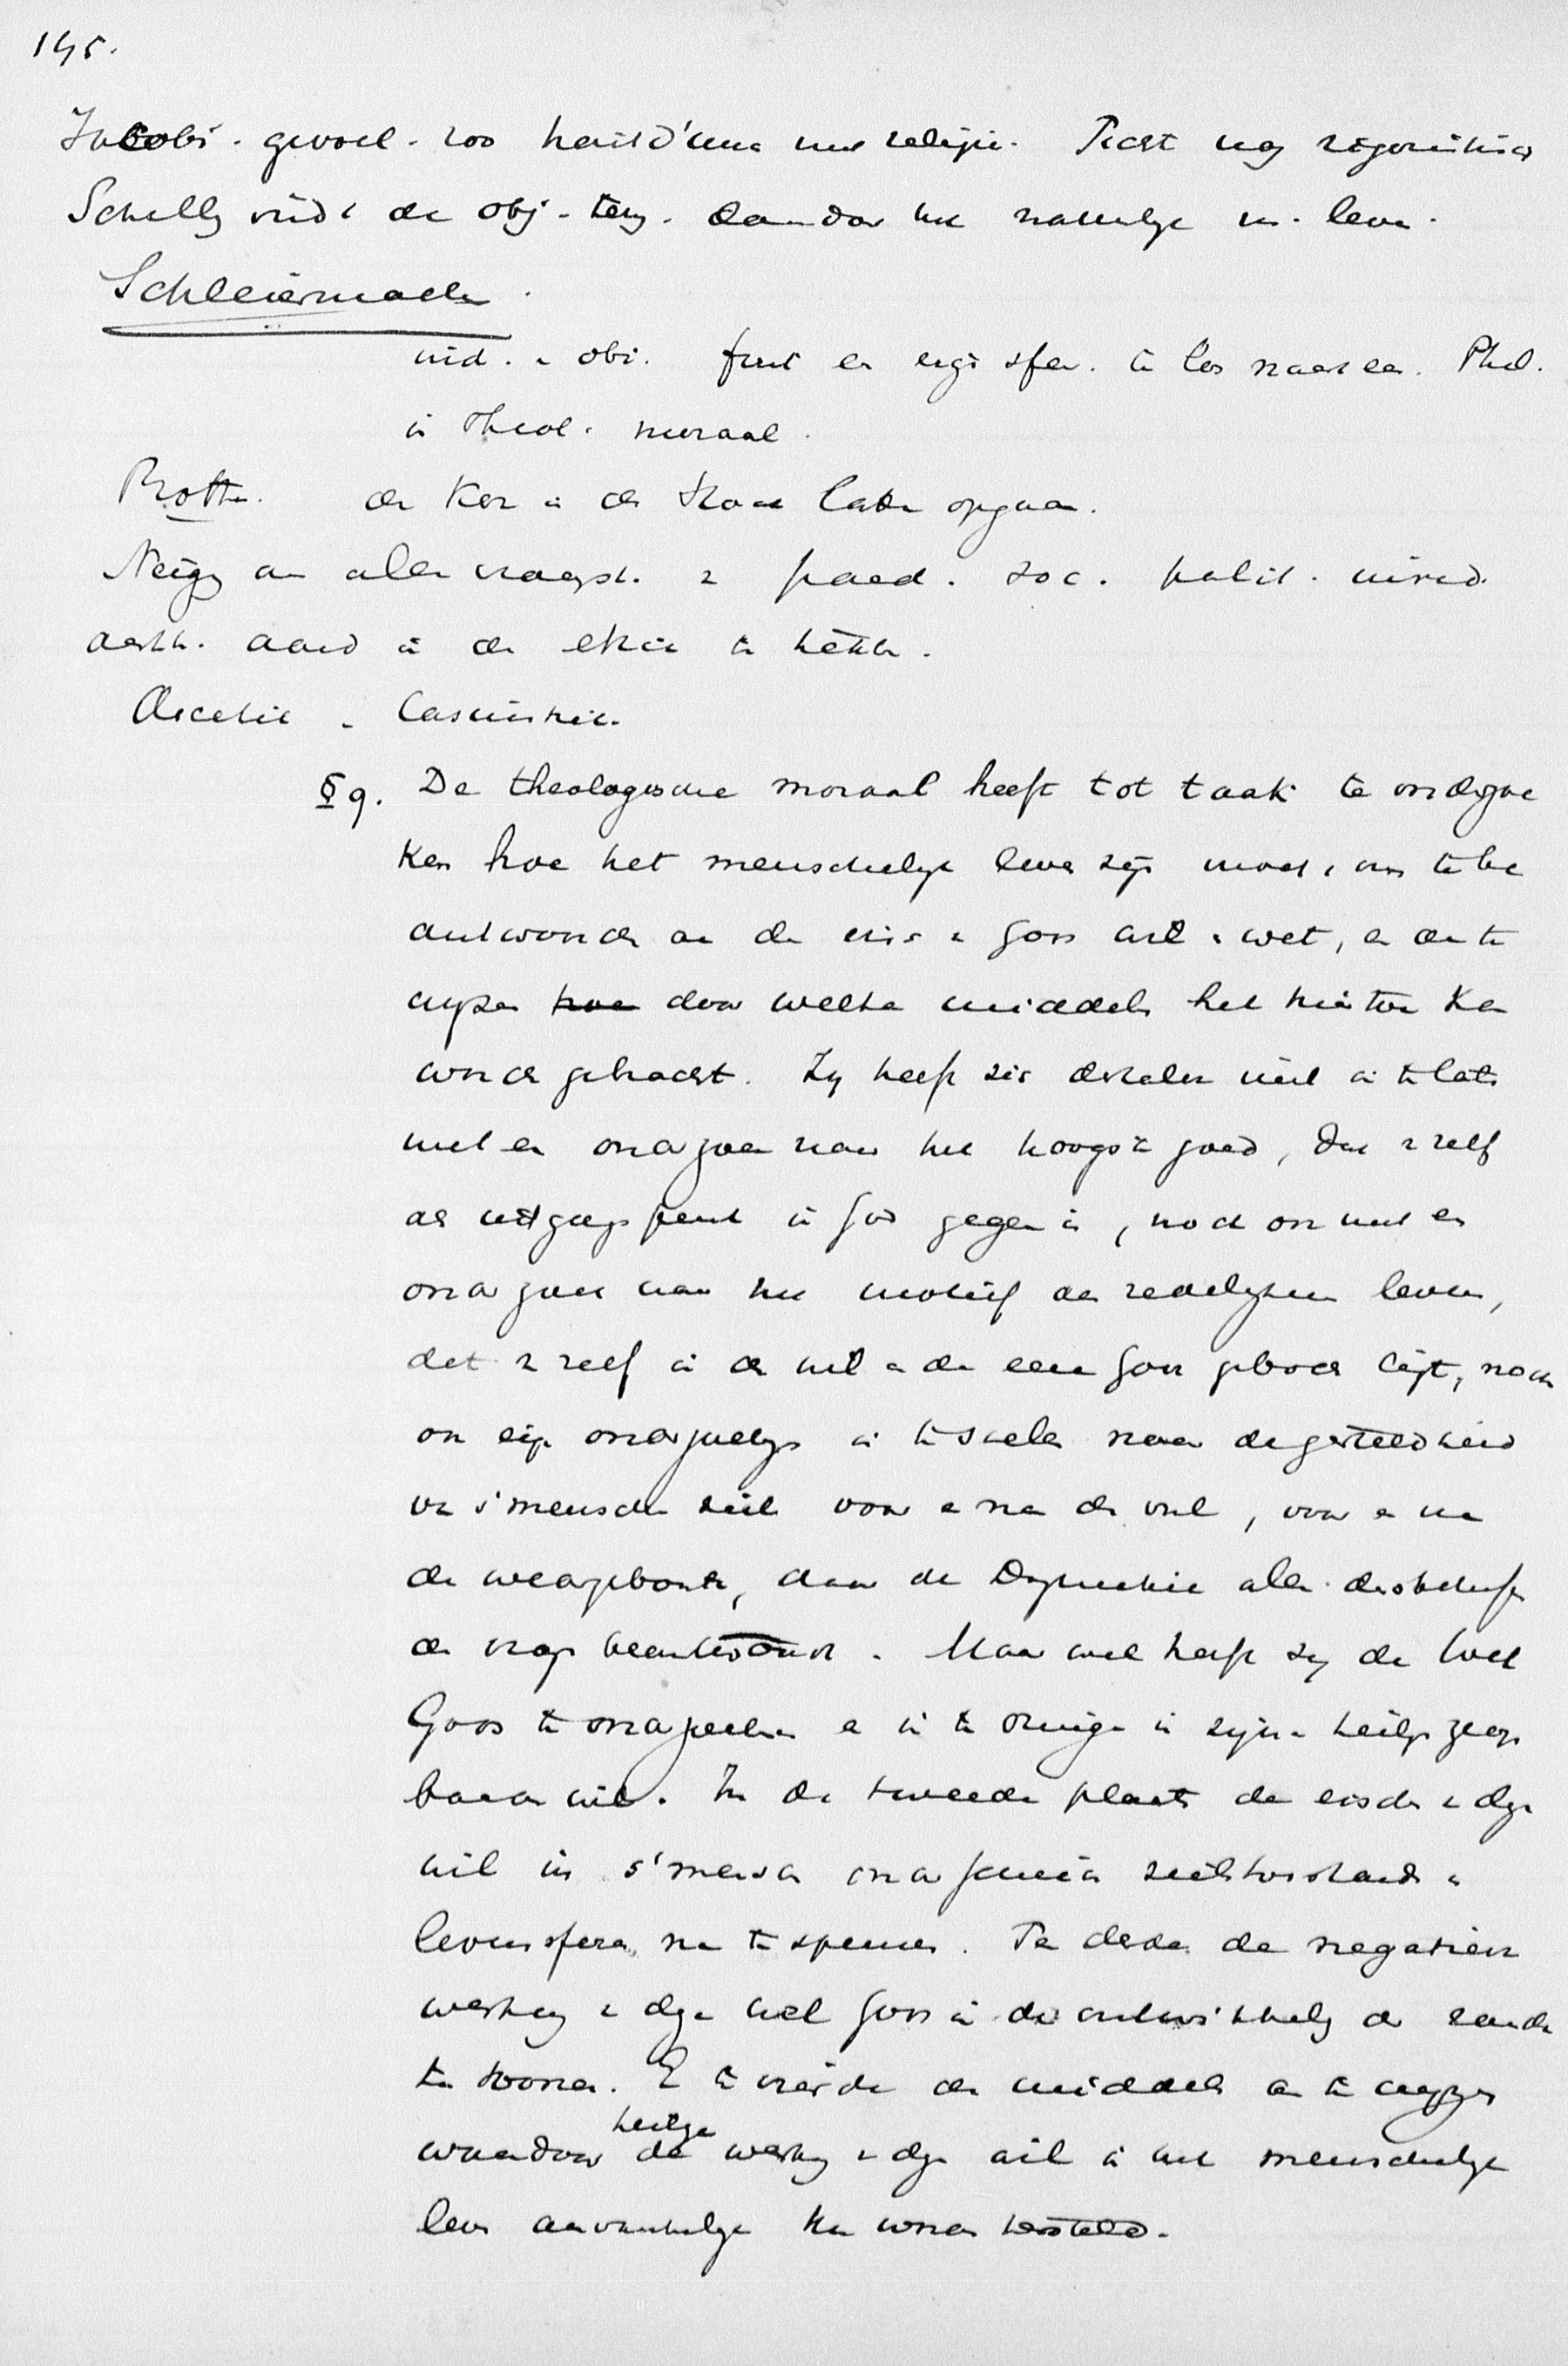 145.
Jacobi. gevoel. zoo hield' een met religie. Ficht nog
Schellg vindt de obj. terug. daardoor het natuurlijke in leven.
Schleiermacher.
ind. en obj. fout en eigen sfeer te los naast een. Phil.
in theol. moraal.
Rothe. de Kerk in de Staat laten opgaan.
Neiging om allen vraagst. v paed. soc. polit.
aesth. aard in de ethiek te
Ascetiek en Casuistiek.
§ 9. De theologische moraal heeft tot taak te onderzoe
ken hoe het menschelijk leven zijn moet, om te be
antwoorden aan de eisch v Gods wil en wet, en aan te
wijzen hoe door welke middelen het hiertoe kan
worden gebracht. Zij heeft zich derhalve niet in te laten
met een onderzoek naar het hoogste goed, dat v zelf
als uitgangspunt in God gegeven is, noch ook met een
onderzoek naar het motief des zedelijken levens,
dat v zelf in de wil en de eere Gods geboden ligt, noch
ook eigen onderzoekingen in te stellen naar de gesteldheid
van s'menschen ziel voor en na de val, voor en na
de wedergeboorte, daar de Dogmatiek alle desbetreffende
de vragen beantwoordt. Maar wel heeft zij de Wet
Gods te onderzoeken en in te dringen in zijn heilige geopen
baarden wil. In de tweede plaats de eischen v dezen
wil in s'menschen onderscheiden zielstoestand en
levenssferen na te speuren. Ten derde de negatieve
werking v dezen wil Gods in de ontwikkeling der zonde
te toonen. En ten vierde de middelen aan te wijzen
waardoor de heilige werking v dezen wil in het menschelijke
leven aanvankelijk kan worden hersteld.